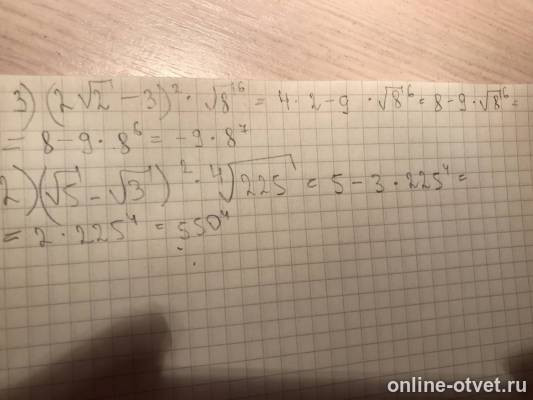 3) (2√2 - 3)² · √8¹⁶ = 4 · 2 - 9 · √8¹⁶ = 8 - 9 · √8¹⁶ =
= 8 - 9 · 8⁶ = -9 · 8⁷
2) (√5 - √3)² · ⁴√225 = 5 - 3 · 225⁴ =
= 2 · 225⁴ = 550⁴
online-otvet.ru